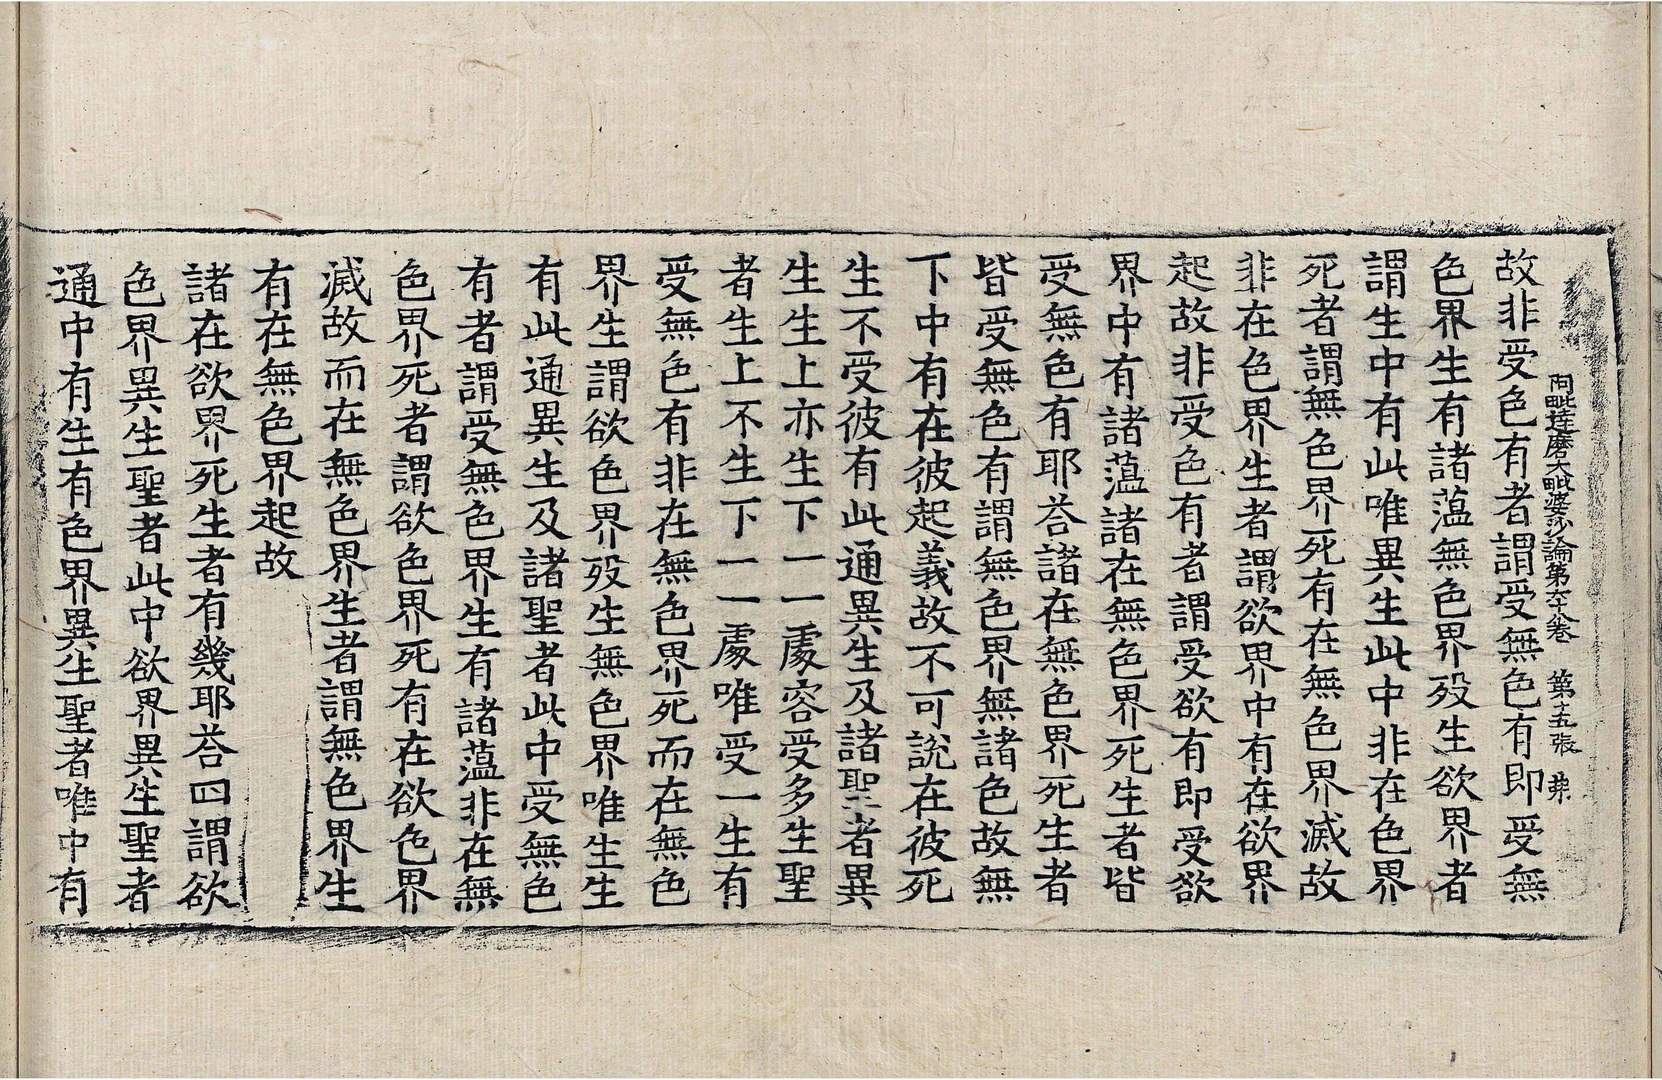 阿毗達磨大毗婆沙論第六十八卷　第十五張
故非受色有者謂受無色有即受無
色界生有諸蕰無色界歿生欲界者
謂生中有此唯異生此中非在色界
死者謂無色界死有在無色界滅故
非在色界生者謂欲界中有在欲界
起故非受色有者謂受欲有即受欲
界中有諸蕰諸在無色界死生者皆
受無色有耶荅諸在無色界死生者
皆受無色有謂無色界無諸色故無
下中有在彼起義故不可說在彼死
生不受彼有此通異生及諸聖者異
生生上亦生下一一處容受多生聖
者生上不生下一一處唯受一生有
受無色有非在無色界死而在無色
界生謂欲色界歿生無色界唯生生
有此通異生及諸聖者此中受無色
有者謂受無色界生有諸蕰非在無
色界死者謂欲色界死有在欲色界
滅故而在無色界生者謂無色界生
有在無色界起故
諸在欲界死生者有幾耶荅四謂欲
色界異生聖者此中欲界異生聖者
通中有生有色界異生聖者唯中有